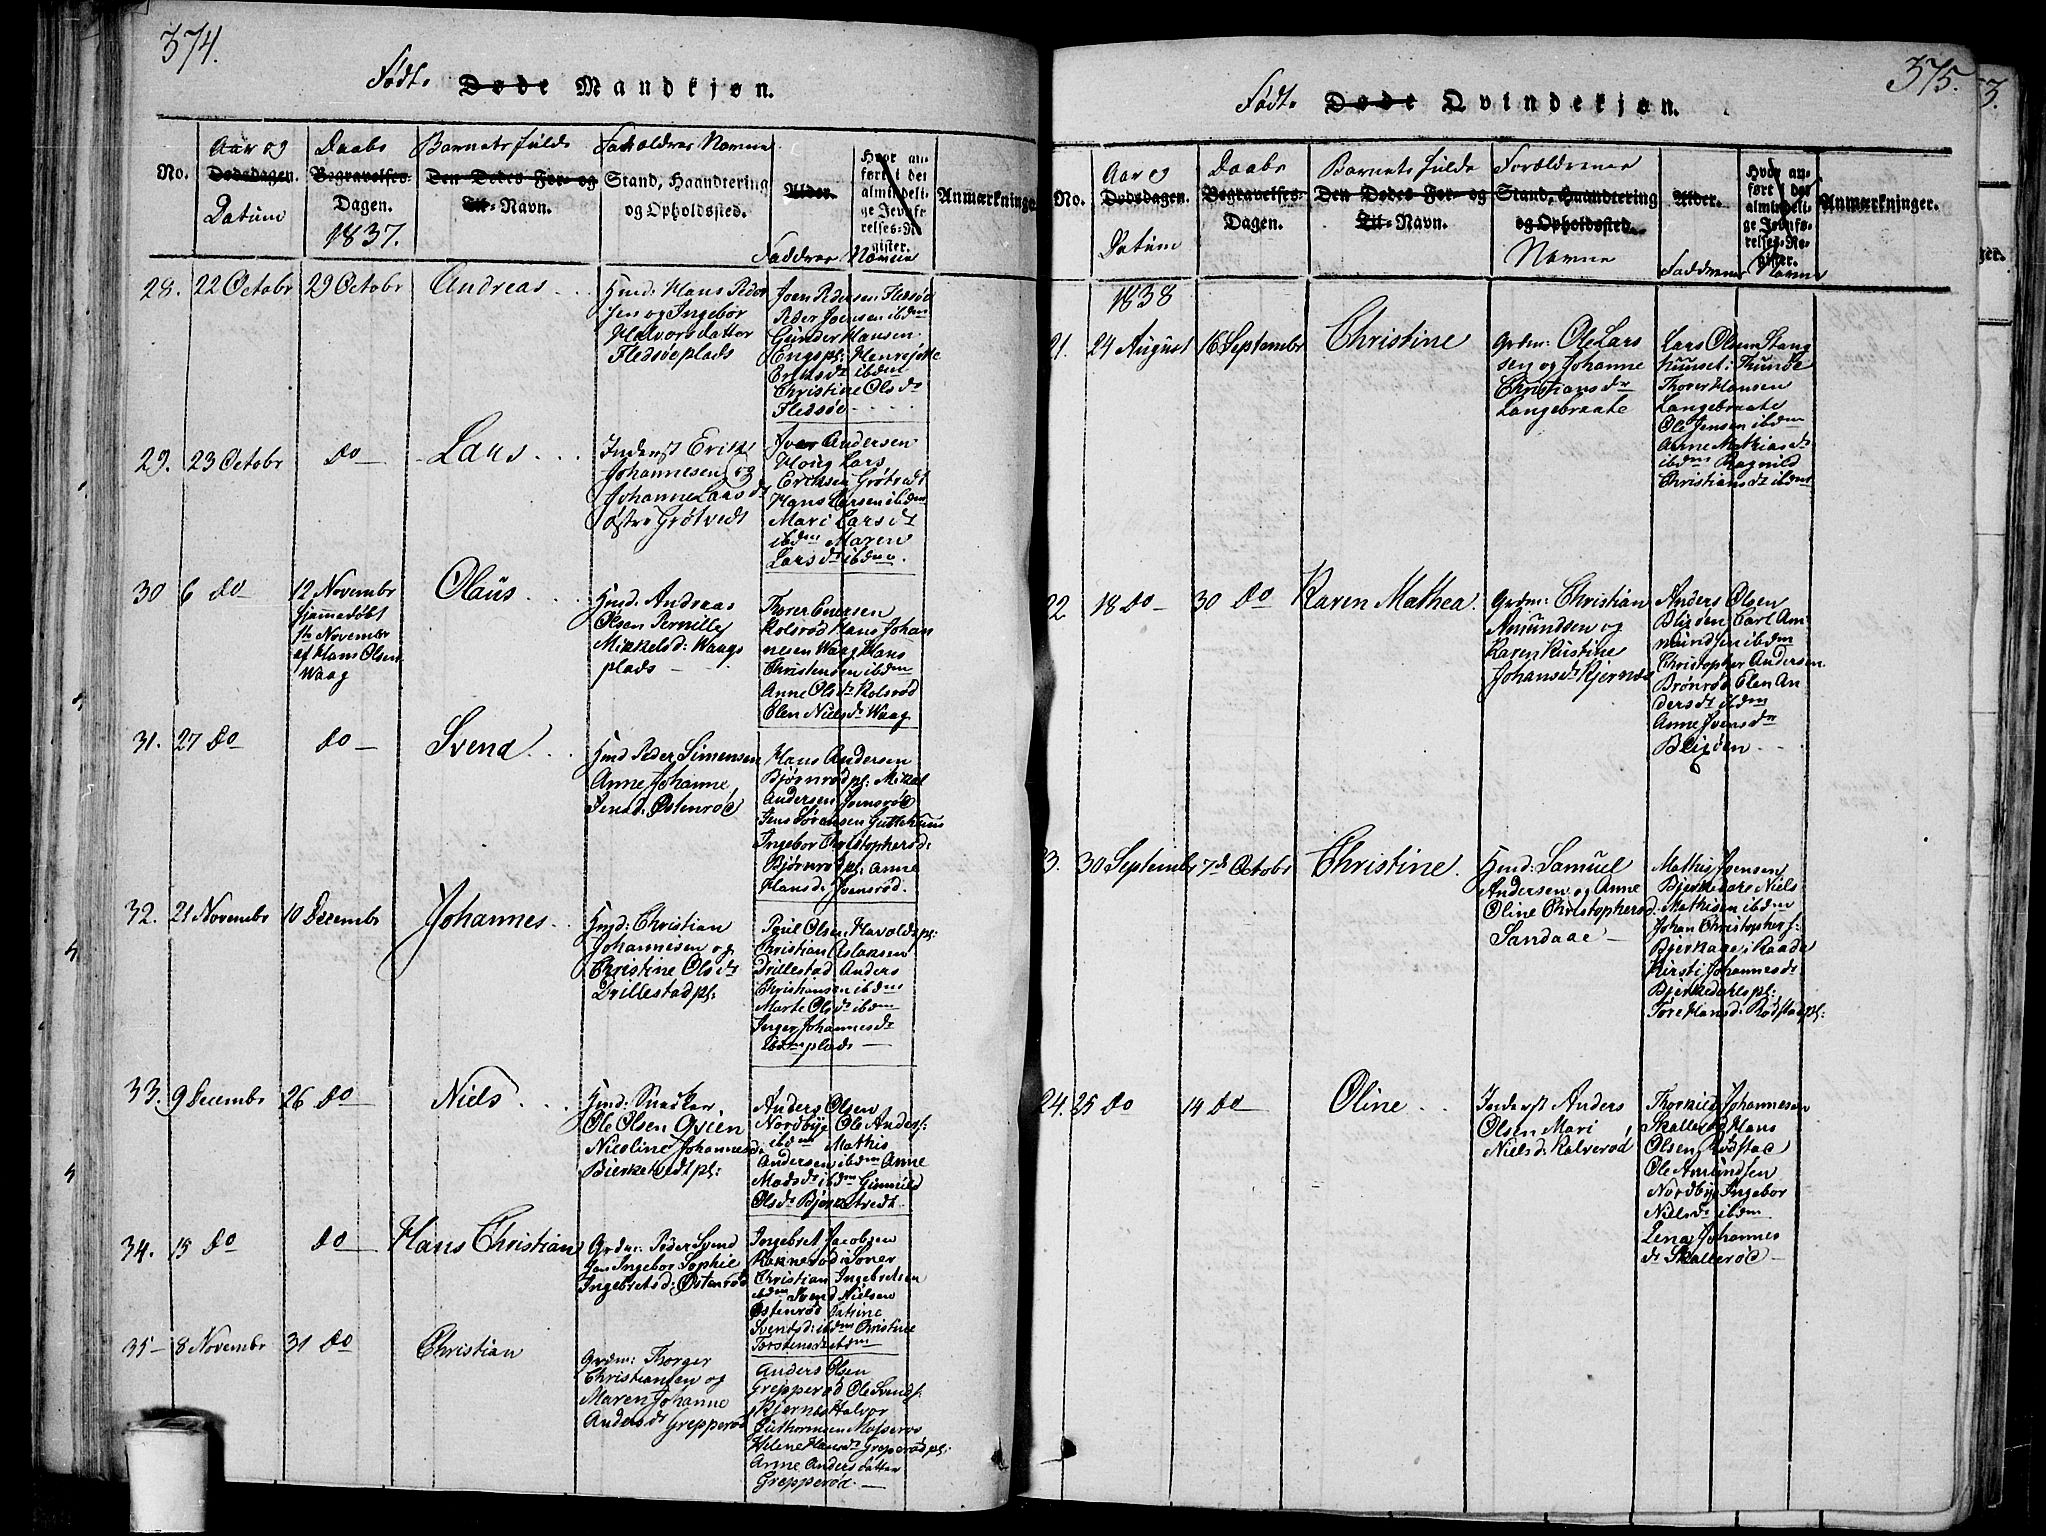 374.
Født. Døde Mandkjøn.
No.
Aar og
Dødsdagen.
Datum
Daabs
Begravelses-
Dagen.
1837.
Barnets fulde
Den Dødes For- og
Til-Navn.
Forældres Navne
Stand, Haandtering
og Opholdsted.
Alder.
Hvor an-
ført i det
almindeli-
ge Jevnfø-
relses-Re-
gister.
Faddres Navne
Anmærkninger
28. 22 Octobr 29 Octobr Andreas
Hmd: Hans Peder
sen og Ingebor
Halvorsdatter
Fledsøeplads
Joen Pedersen Fledsøe
Peder Joensen ibdm
Gunder Hansen
Engspl: Henrjette
Eriksdr ibdm
Christine Olsdr
Fledsøe
29. 23 Octobr do Lars
Inderst Erik
Johannesen og
Johanne Larsdr
østre Grøtvedt
Iver Andersen
Houg Lars
Eriksen Grøtvedt
Hans Larsen ibdm
Mari Larsdr
ibdm Maren
Larsdr ibdm
30 6 do 12 Novembr Olaus
hjemmedøbt
Novembr
af Hans Olsen
Waag
Hmd: Andreas
Olsen Pernille
Mikkelsd: Waags
plads
Thorer Eversen
Kolsrød Hans Johan
nesen Waag Hans
Christensen ibdm
Anne Olsdr Kolsrød
Elen Nielsdr Waag
31. 27 do do Svend
Hmd Peder Simensen
Anne Johanne
Jensd: Østenrød
Hans Andersen
Bjørnrødpl: Mikel
Andersen Joensrød
Jens Sørensen Guttehuus
Ingebor Christophersd:
Bjørnrødpl: Anne
Hansd: Joensrød.
32. 21 Novembr 10 Decembr Johannes
Hmd: Christian
Johannesen og
Christine Olsdr
Drillestadpl:
Poul Olsen Havoldspl:
Christian Aslaksen
Drillestad Anders
Christiansen ibdm
Marte Olsdr ibdm
Inger Johannesdr
ibdm plads
33. 9 Decembr 26 do Niels
Hmd: Snedker
Ole Olsen Qvien
Nicoline Johannesd:
Bjerketvedtpl:
Anders Olsen
Nordbye Ole Anders:
ibdm Mathis
Andersen ibdm Anne
Madsdr ibdm Gunnild
Olsdr Bjerketvedt.
34. 15 do do Hans Christian
Grdm: Peder Svend
sen Ingebor Sophie
Ingebretsd: Østenrød
Ingebret Jacobsen
Rannerød i Soner
Christian Ingebretsen
ibdm Svend Nielsen
Østenrød Catrine
Svendsd: ibdm Christine
Torstensdr ibdm
35- 8 Novembr 31 do Christian
Grdm: Thorger
Christiansen og
Maren Johanne
Andersdr Grepperød
Anders Olsen
Grepperød Ole Svends:
Bjernes Halvor
Guthormsen Mosserød
Helene Hansdr Greperødpl:
Anne Anders datter
Grepperød.
375.
Født. Døde Qvindekjøn.
No.
Aar og
Dødsdagen.
Datum
Daabs
Begravelses-
Dagen.
Barnets fulde
Den Dødes For- og
Til-Navn.
Forældrenes
Stand, Haandtering
og Opholdsted.
Navne
Alder.
Hvor an-
ført i det
almindeli-
ge Jevnfø-
relses-Re-
gister.
Faddrenes Navne
Anmærkninger.
1838
21. 24 August 16 Septembr Christine
Grdm: Ole Lars
sen og Johanne
Christiansdr
Langebraate
Lars Olsen Stang
huuset: Thunde
Thorer Hansen
Langebraate
Ole Jensen ibdm
Anne Mathiasdr
ibdm Ragnild
Christiansdr ibdm
22 18 do 30 do Karen Mathea.
Grdm: Christian
Amundsen og
Karen Kristine
Johansdr Kjernæs
Anders Olsen
Blixen Carl Am-
mundsen ibdm
Christopher Andersen
Brønrød Elen An
dersdr ibdm
Anne Jvensdr
Blixen
3. 30 Septembr 7de Octobr Christine.
Hmd: Samuel
Andersen og Anne
Oline Christophersd:
Sandaae
Mathis Joensen
Bjerkedals Niels
Mathisen ibdm
Johan Christophers:
Bjerkaae, i Raade
Kirsti Johannesdr
Bjerkedalspl:
Tore Hansd: Rødstadpl:
24. 25 do 14 do Oline
Inderst Anders
Olsen Mari
Nielsd: Kalverød
Thorkild Johannesen
Skallerød Hans
Olsen Rødstad
Ole Amundsen
Nordbye Ingebor
Nielsdr ibdm
Lena Johannes
dr Skallerød